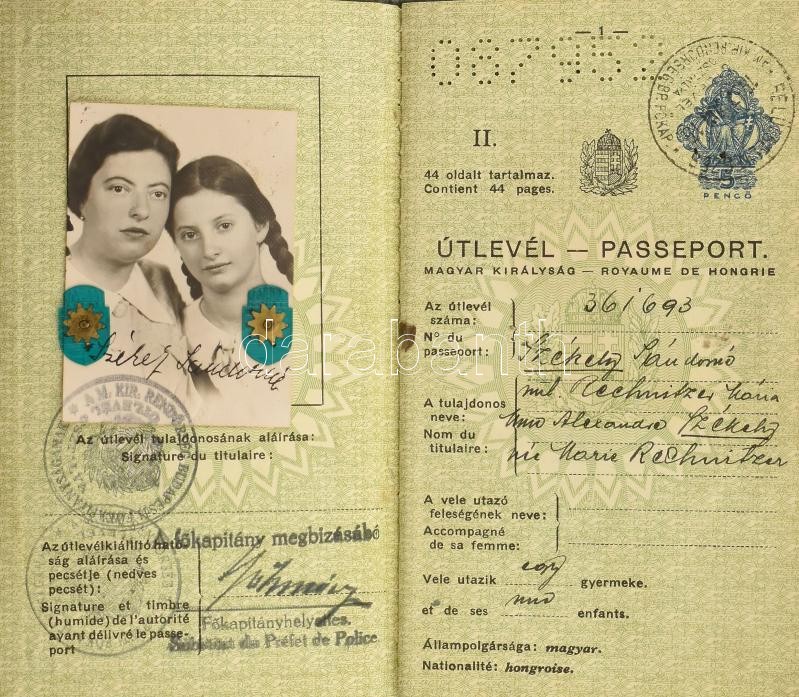 Székely Sándorné
A M. KIR. RENDŐRSÉG BUDAPESTI FŐKAPITÁNYSÁGÁNAK
Az útlevél tulajdonosának aláírása:
Signature du titulaire:
A főkapitány megbízásábó
Az útlevélkiállító ható-
ság aláírása és
pecsétje (nedves
pecsét):
Signature et timbre
(humide) de l'autorité
ayant délivré le passe-
port
Főkapitányhelyettes.
Substitut du Préfet de Police
— 1 —
067953
5
PENGŐ
II.
44 oldalt tartalmaz.
Contient 44 pages.
ÚTLEVÉL — PASSEPORT.
MAGYAR KIRÁLYSÁG — ROYAUME DE HONGRIE
Az útlevél
száma:
361693
N° du
passeport:
Székely Sándorné
szül. Rechnitzer Mária
A tulajdonos
neve:
Mme Alexandre Székely
Nom du
titulaire:
née Marie Rechnitzer
A vele utazó
feleségének neve:
Accompagné
de sa femme:
Vele utazik egy gyermeke.
et de ses enfants.
Állampolgársága: magyar.
Nationalité: hongroise.
darabanth